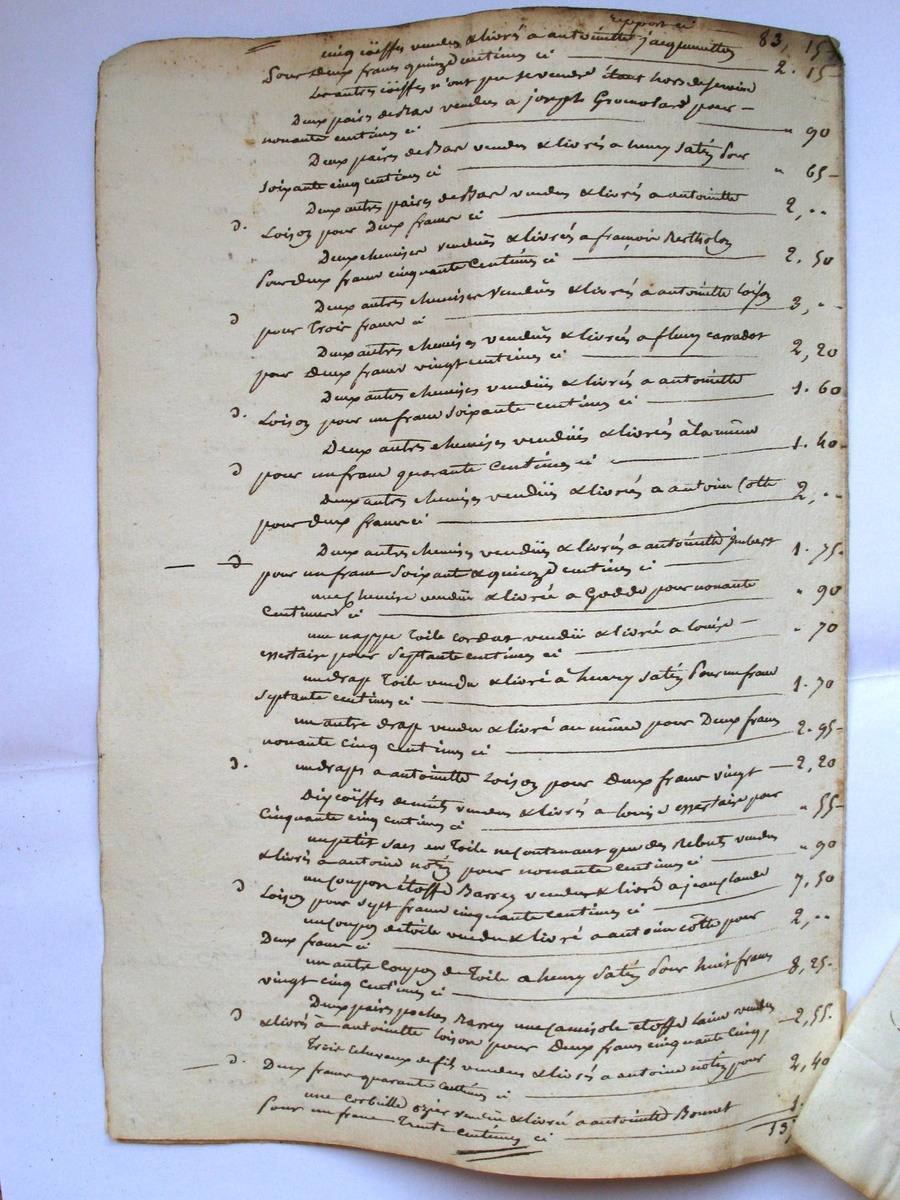 Report ci 83, 15
cinq coëffes vendues & livrés a antoinette jacquemetton
Pour deux francs quinze centimes ci 2. 15
Les autres coëffes n'ont peu se vendre étant hors de service
Deux pairs de Bas vendus a joseph Gromolard pour
nonante centimes ci " 90
Deux pairs de Bas vendus & livrés a henry Satin pour
soixante cinq centimes ci " 65
Deux autres paires de Bas vendus & livrés a antoinette
D. Loison pour Deux francs ci 2, ..
Deux chemises vendues & livrés a francois Bertholon
Pour deux francs cinquante Centimes ci 2. 50
Deux autres chemises vendües & livrés a antoinette loison
D pour Trois francs ci 3, ..
Deux autres chemises vendües & livrés a fleury carradot
pour Deux francs vingt centimes ci 2, 20
Deux autres chemises vendües & livrés a antoinette
D. Loison pour un franc soixante centimes ci 1. 60
Deux autres chemises vendüés & livrés à la même
D pour un franc quarante Centimes ci 1. 40
Deux autres chemises vendües & livrés a antoine Cotte
pour deux francs ci 2, ..
Deux autres chemises vendües & livrés a antoinette jmbert
D pour un franc Soixante & quinze centimes ci 1. 75
une chemise vendüe & livrée a Godde pour nonante
Centimes ci " 90
une nappe Toile cordat vendüe & livrée a louise
essertaise pour Septante centimes ci " 70
un drap Toile vendu & livré à henry Satin Pour un franc
Septante centimes ci 1. 70
un autre drap vendu & livré au même pour Deux francs
nonante cinq centimes ci 2. 95
D. un draps a antoinette Loison pour Deux francs vingt 2, 20
Dix coëffes de nuits vendues & livrés a louise essertaise pour
Cinquante cinq centimes ci " 55
un petit sacs en Toile ne contenant que des Rebuts vendus
& livrés a antoine notin pour nonante centimes ci " 90
un coupon étoffe Barrez vendus & livré a jean claude
D Loison pour sept francs cinquante centimes ci 7, 50
un coupon de toile vendu & livré a antoine côtte pour
Deux francs ci 2, ..
un autre Coupon de Toile a henry Satin Pour huit francs
vingt cinq centimes ci 8, 25
Deux pairs poches Barrez une camisole étoffe laine vendues
D & livrés à antoinette loison pour Deux francs cinquante cinq, 2, 55.
Trois Echevaux de fil vendus & livrés a antoine notin pour
D. Deux francs quarante centimes ci 2, 40
une corbeille ozier vendüe & livrée a antoinette Bonnet
Pour un franc Trente centimes ci 1.
13